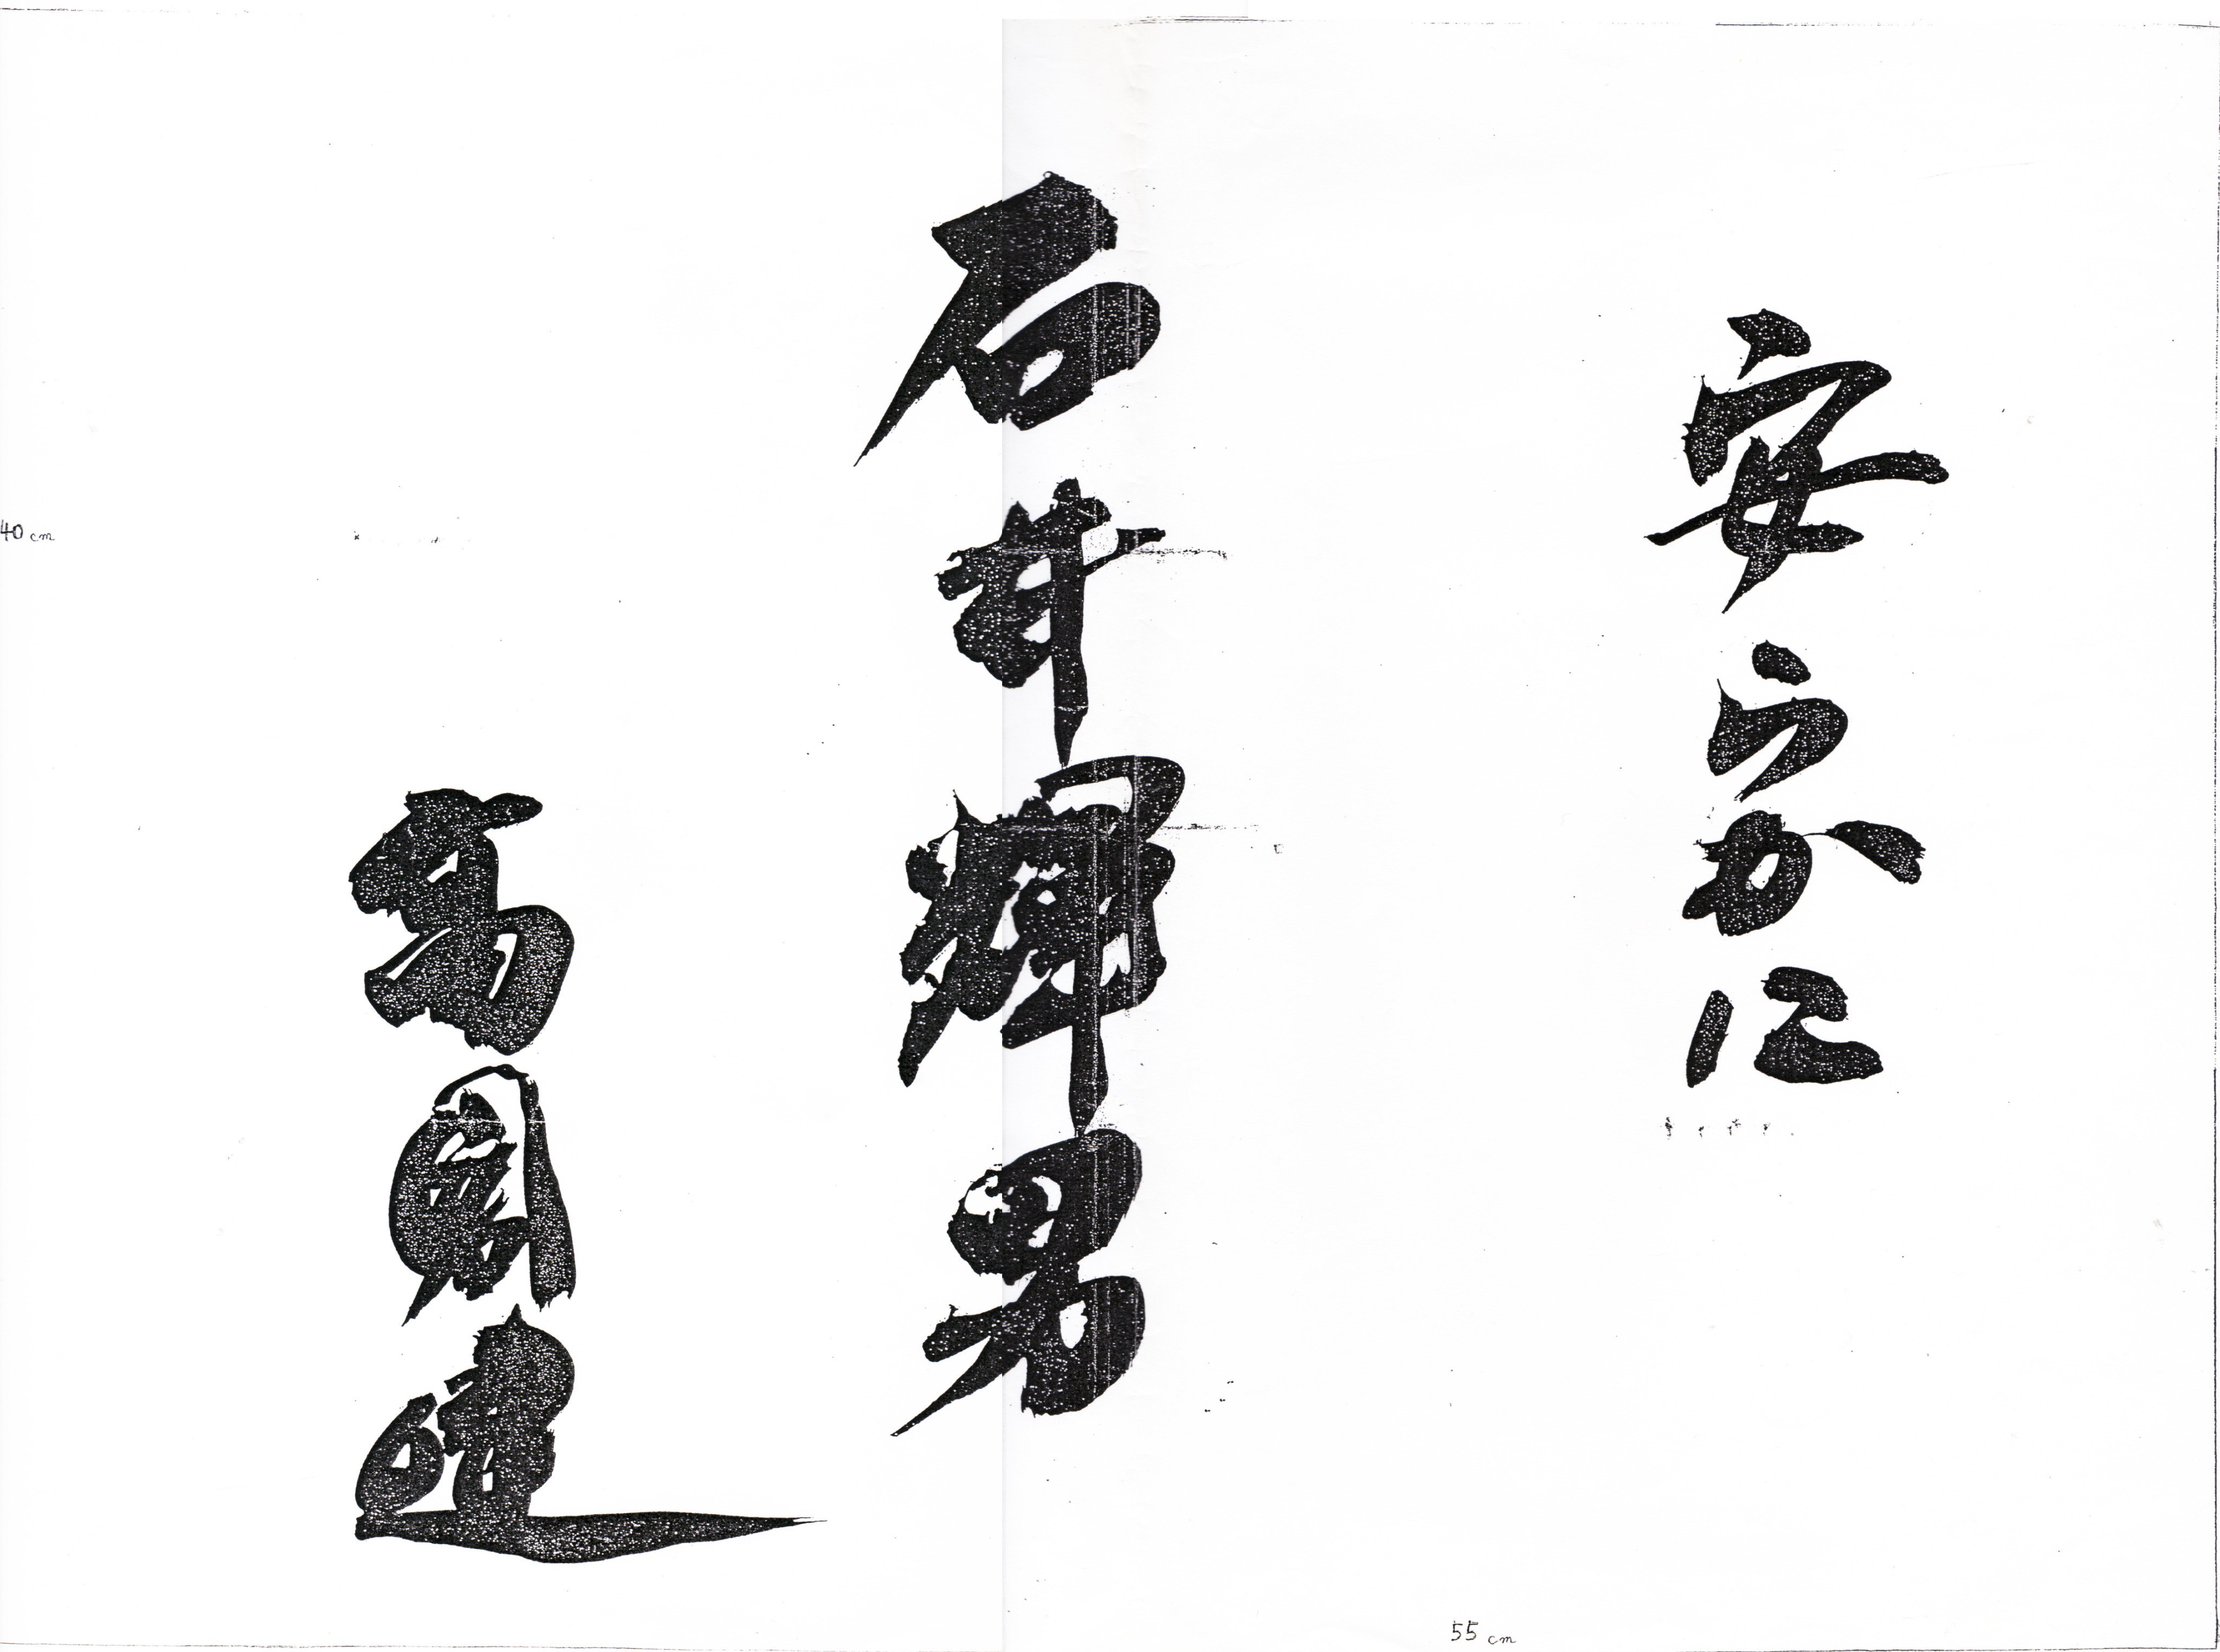 安らかに
石井輝男
高倉健
40 cm
55 cm